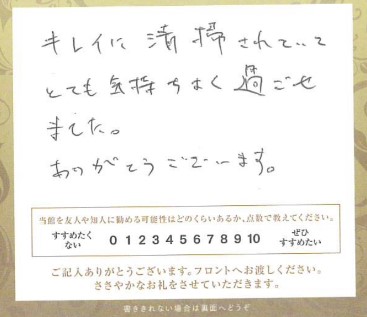 キレイに清掃されていて
とても気持ちよく過ごせ
ました。
ありがとうございます。
当館を友人や知人に勧める可能性はどのくらいあるか、点数で教えてください。
すすめたくない 0 1 2 3 4 5 6 7 8 9 10 ぜひすすめたい
ご記入ありがとうございます。フロントへお渡しください。
ささやかなお礼をさせていただきます。
書ききれない場合は裏面へどうぞ